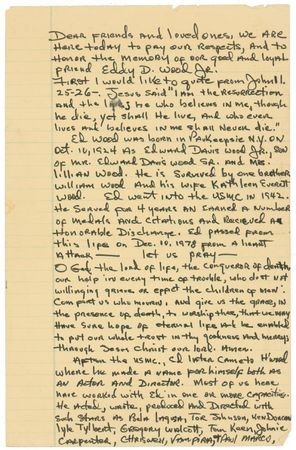 Dear friends and loved ones, we are
here today to pay our respects, and to
honor the memory of our good and loyal
friend Eddy D. Wood Jr.
First I would like to quote from John 11
25-26. Jesus said "I am the resurrection
and the life he who believes in me, though
he die, yet shall he live, and who ever
lives and believes in me shall never die."
Ed Wood was born in Pokeepsie N.Y. on
Oct. 10, 1924 as Edward Davis Wood Jr., son
of Mr. Edward Davis Wood Sr. and Mrs.
Lillian Wood. He is survived by one brother
William Wood and his wife Kathleen Everett
Wood. Ed went into the USMC in 1942.
He served for 4 years and earned a number
of medals and citations and recieved an
Honorable Discharge. Ed passed from
this life on Dec. 10, 1978 from a heart
attack — let us pray —
O God, the lord of life, the conqueror of death,
our help in every time of trouble, who dost not
willingly grieve or the children of men.
Comfort us who mourn, and give us the grace, in
the presence of death, to worship thee, that we may
have sure hope of eternal life and be enabled
to put our whole trust in thy goodness and mercy,
through Jesus Christ our lord. Amen.
After the USMC, Ed came to H'wood
where he made a name for himself both as
an Actor and Director. Most of us here
have worked with Ed in one or more capacities.
He acted, wrote, produced and Directed with
such stars as Bela Lugosi, Tor Johnson, Ken Duncan
Lyle Talbert, Gregory Walcott, Tom Keene, Johnie
Carpenter, Criswell, Vampira, Paul Marco,